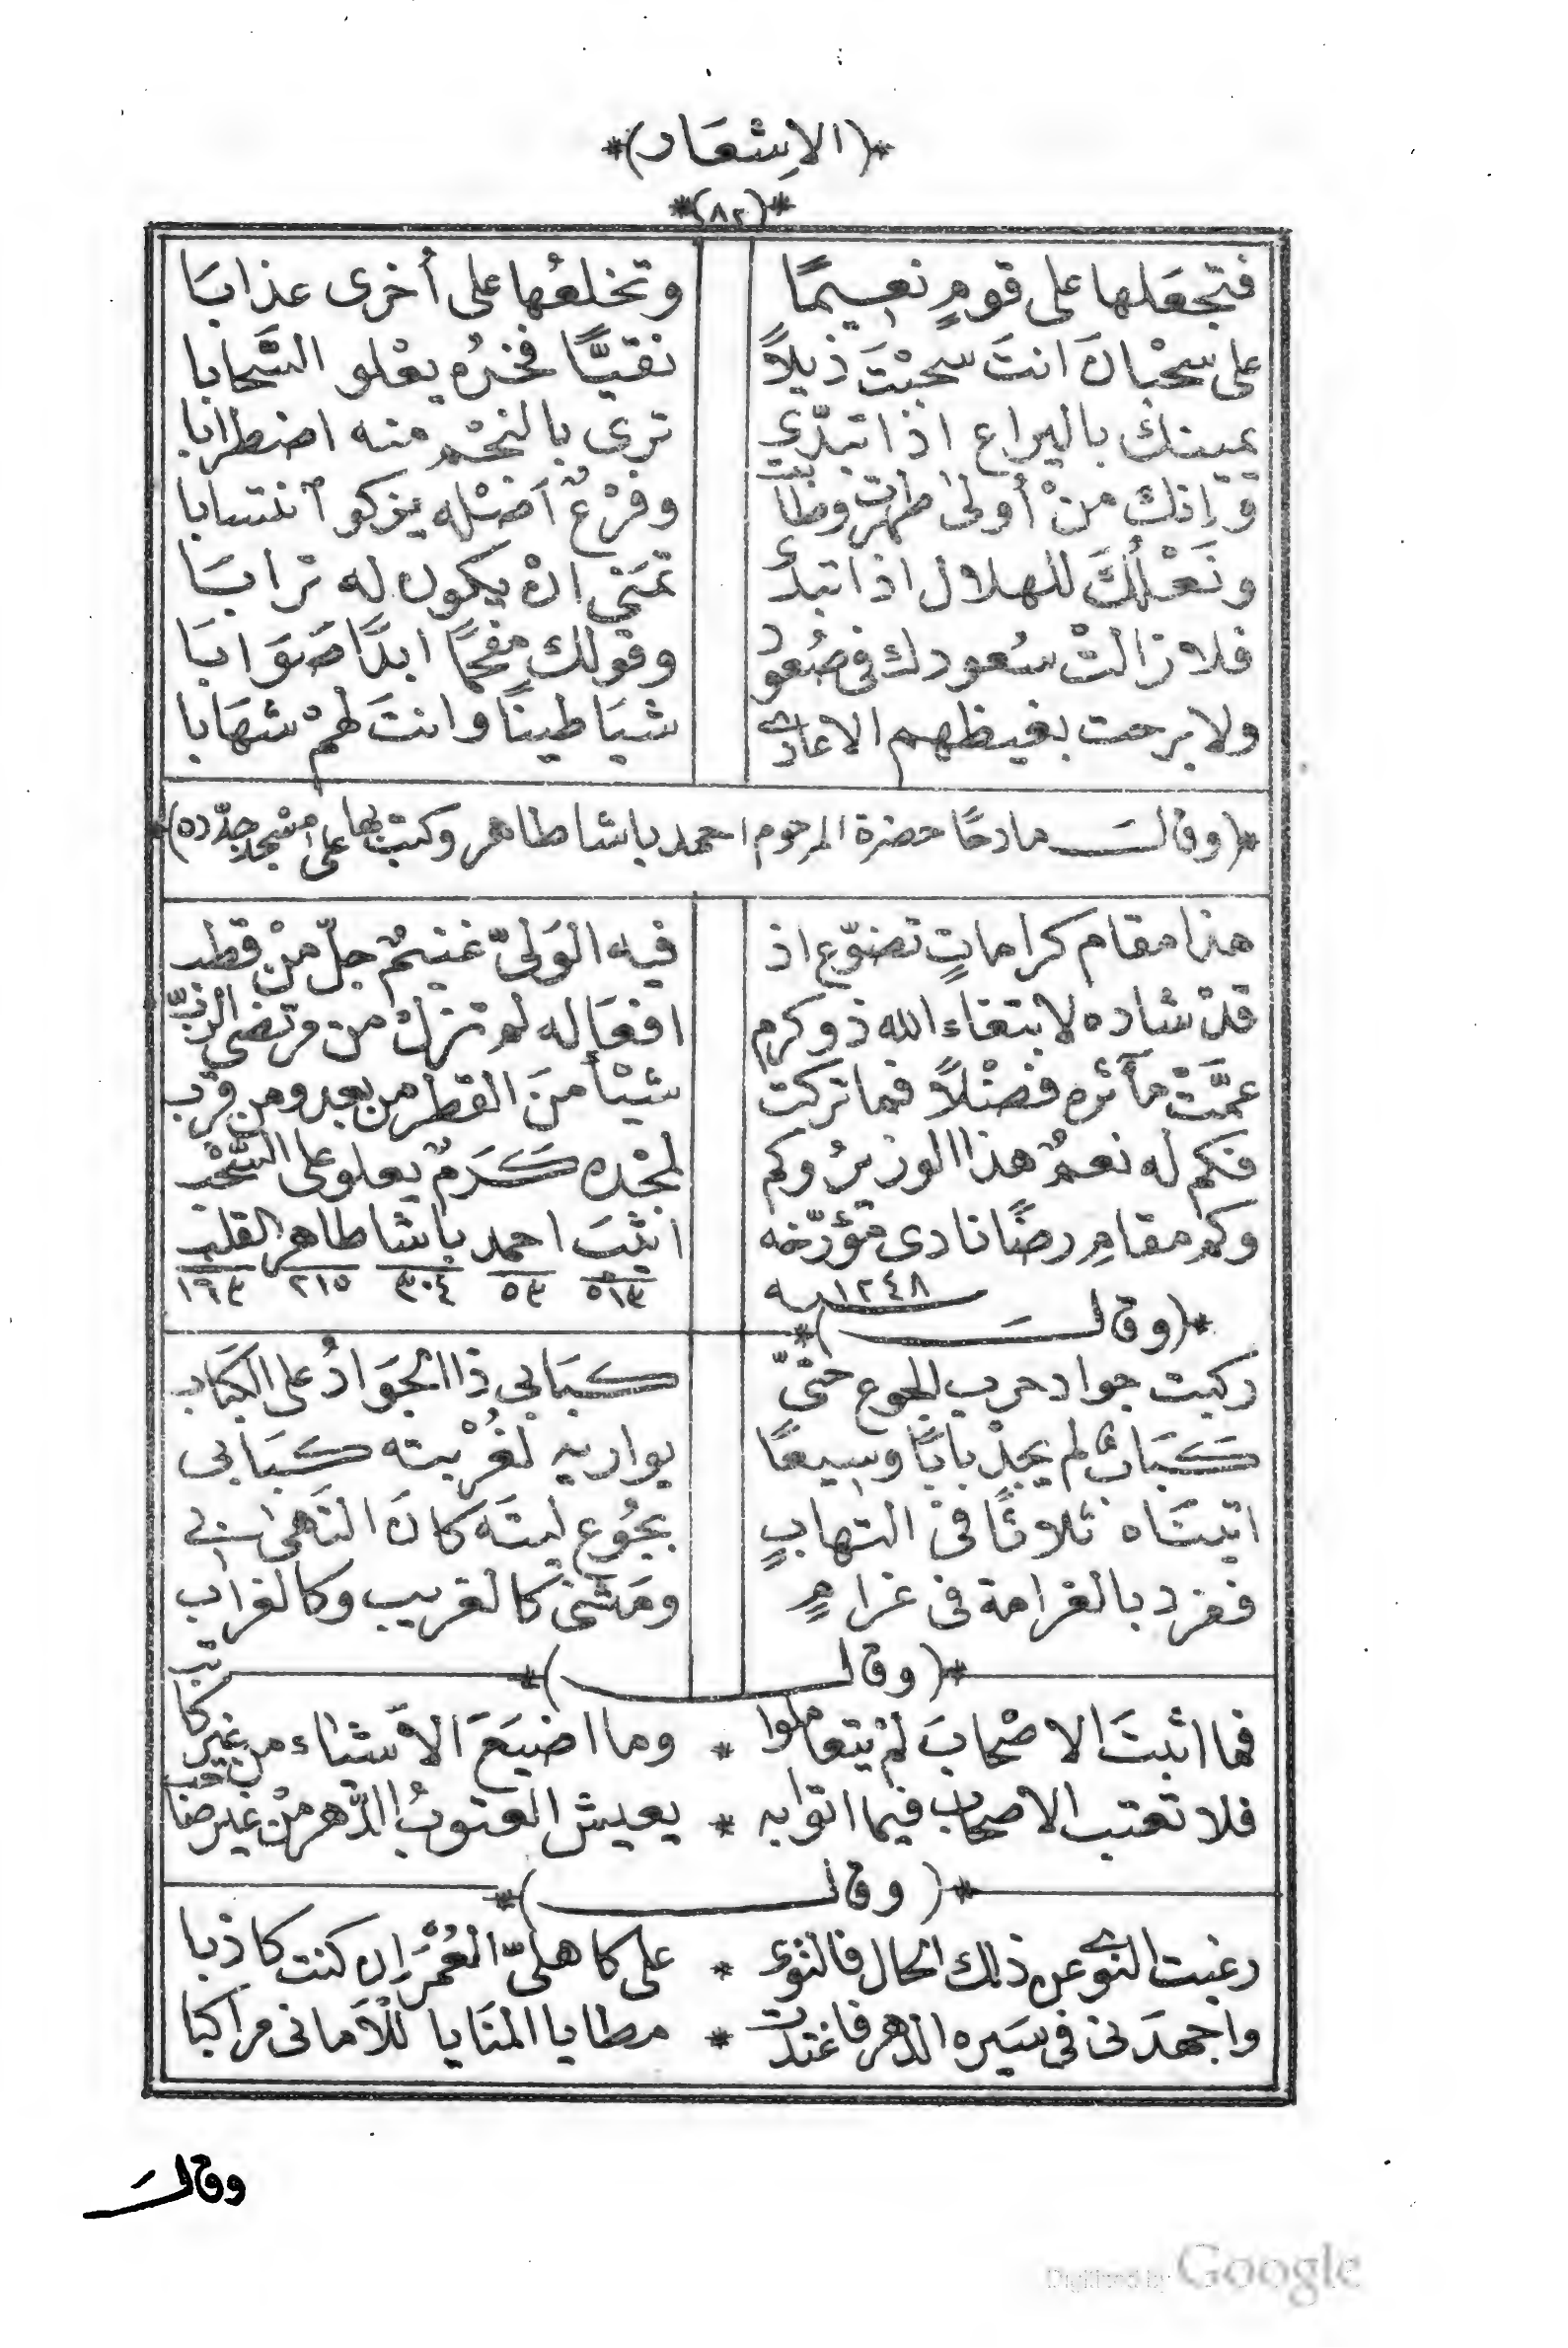 *(الاِشعَار)*
*(٨٢)*
فتجعَلها على قومٍ نعيمًا وتخلعُها على أُخرى عذابَا
على سحْبانَ انتَ سحبْتَ ذيلاً نقيًّا فخرُه يعْلو السَّحابا
يمينك باليراع اذا تبدّى ترى بالنجْم منه اضطرابا
وَإنك منْ أُولىٰ طهرت وطابت وفرْعٌ اَصْله يزكو انتسابا
ونَعْلُكَ للهلال اذا تبدّى تمنى انْ يكون له ترابَا
فلا زالتْ سُعودك فى صُعود وقولك مفحمًا ابدًا صَوَابَا
ولا برحت بغيظهم الاعادى شيَاطينًا وانتَ لهمْ شهَابا
*(وقالَ مادحًا حضرة المرحوم احمد باشا طاهر وكتبَ بها على مسْجد جدّده)*
هذا مقام كراماتٍ تضوّع اذ فيه الوَلىّ غنيمٌ جلّ منْ قطب
قدْ شاده لابتغاء الله ذو كرم افعَاله لم تزلْ من مرتضى الرّب
عمَّتْ مآثره فضْلاً فما تركت شيْأ منَ القطر من بعد ومن قرْب
فكم له نعمٌ هذا الوزيرُ وكم لمجْده كَرَمٌ يعلو على السُّحْب
وكم مقامِ رضًا نادى مُؤَرّخه انيْبَ احمد باشا طاهر القلب
١٢٤٨ سه ٥١٣ ٥٣ ٣٠٤ ٢١٥ ١٦٣
*(وقالَ)*
ركبت جواد حرب الجوع حتّى كبَابى ذا الجَوَادُ على الكبَاب
كَبَابٌ لم يجدْ بابًا وسيعًا يواريه لغُرْبته كبَابى
اتيتَاه ثلاثًا فى التهابٍ بجُوع ليتَه كانَ التَهى بى
فغرد بالغرامة فى غرامٍ ومَشى كالغريب وكالغراب
*(وقال)*
فما اثبتَ الاصْحابَ لمْ يتعاملوا * وما اضيَعَ الاَشياء من غير كاتب
فلا تعتب الاصحاب فيما اتوا به * يعيش العتوبُ الدّهر منْ غير صاحب
*(وقال)*
رغبت النوى عن ذلك الحال فالنوى * على كاهلىّ العُمْرَ إن كنت كاذبا
واجهدَنى فى سَيره الدهر فاغتدت * مطايا المنَايا للأمانى مراكبا
وقالَ
Digitized by Google